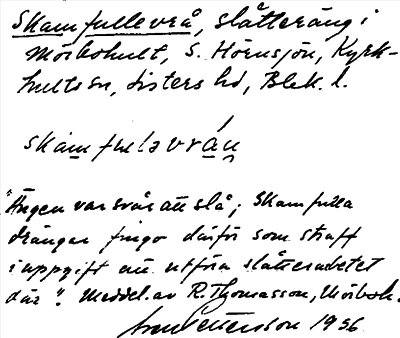 Skamfullevrå, slåtteräng i
Mörbohult, S. Hörnsjön, Kyrk-
hults sn, Listers hd, Blek. l.
skamfuləvrán
"Ängen var svår att slå; skamfulla
drängar fingo därför som straff
i uppgift att utföra slåtterarbetet
där". Meddel. av R. Thomasson, Mörboh.
1956